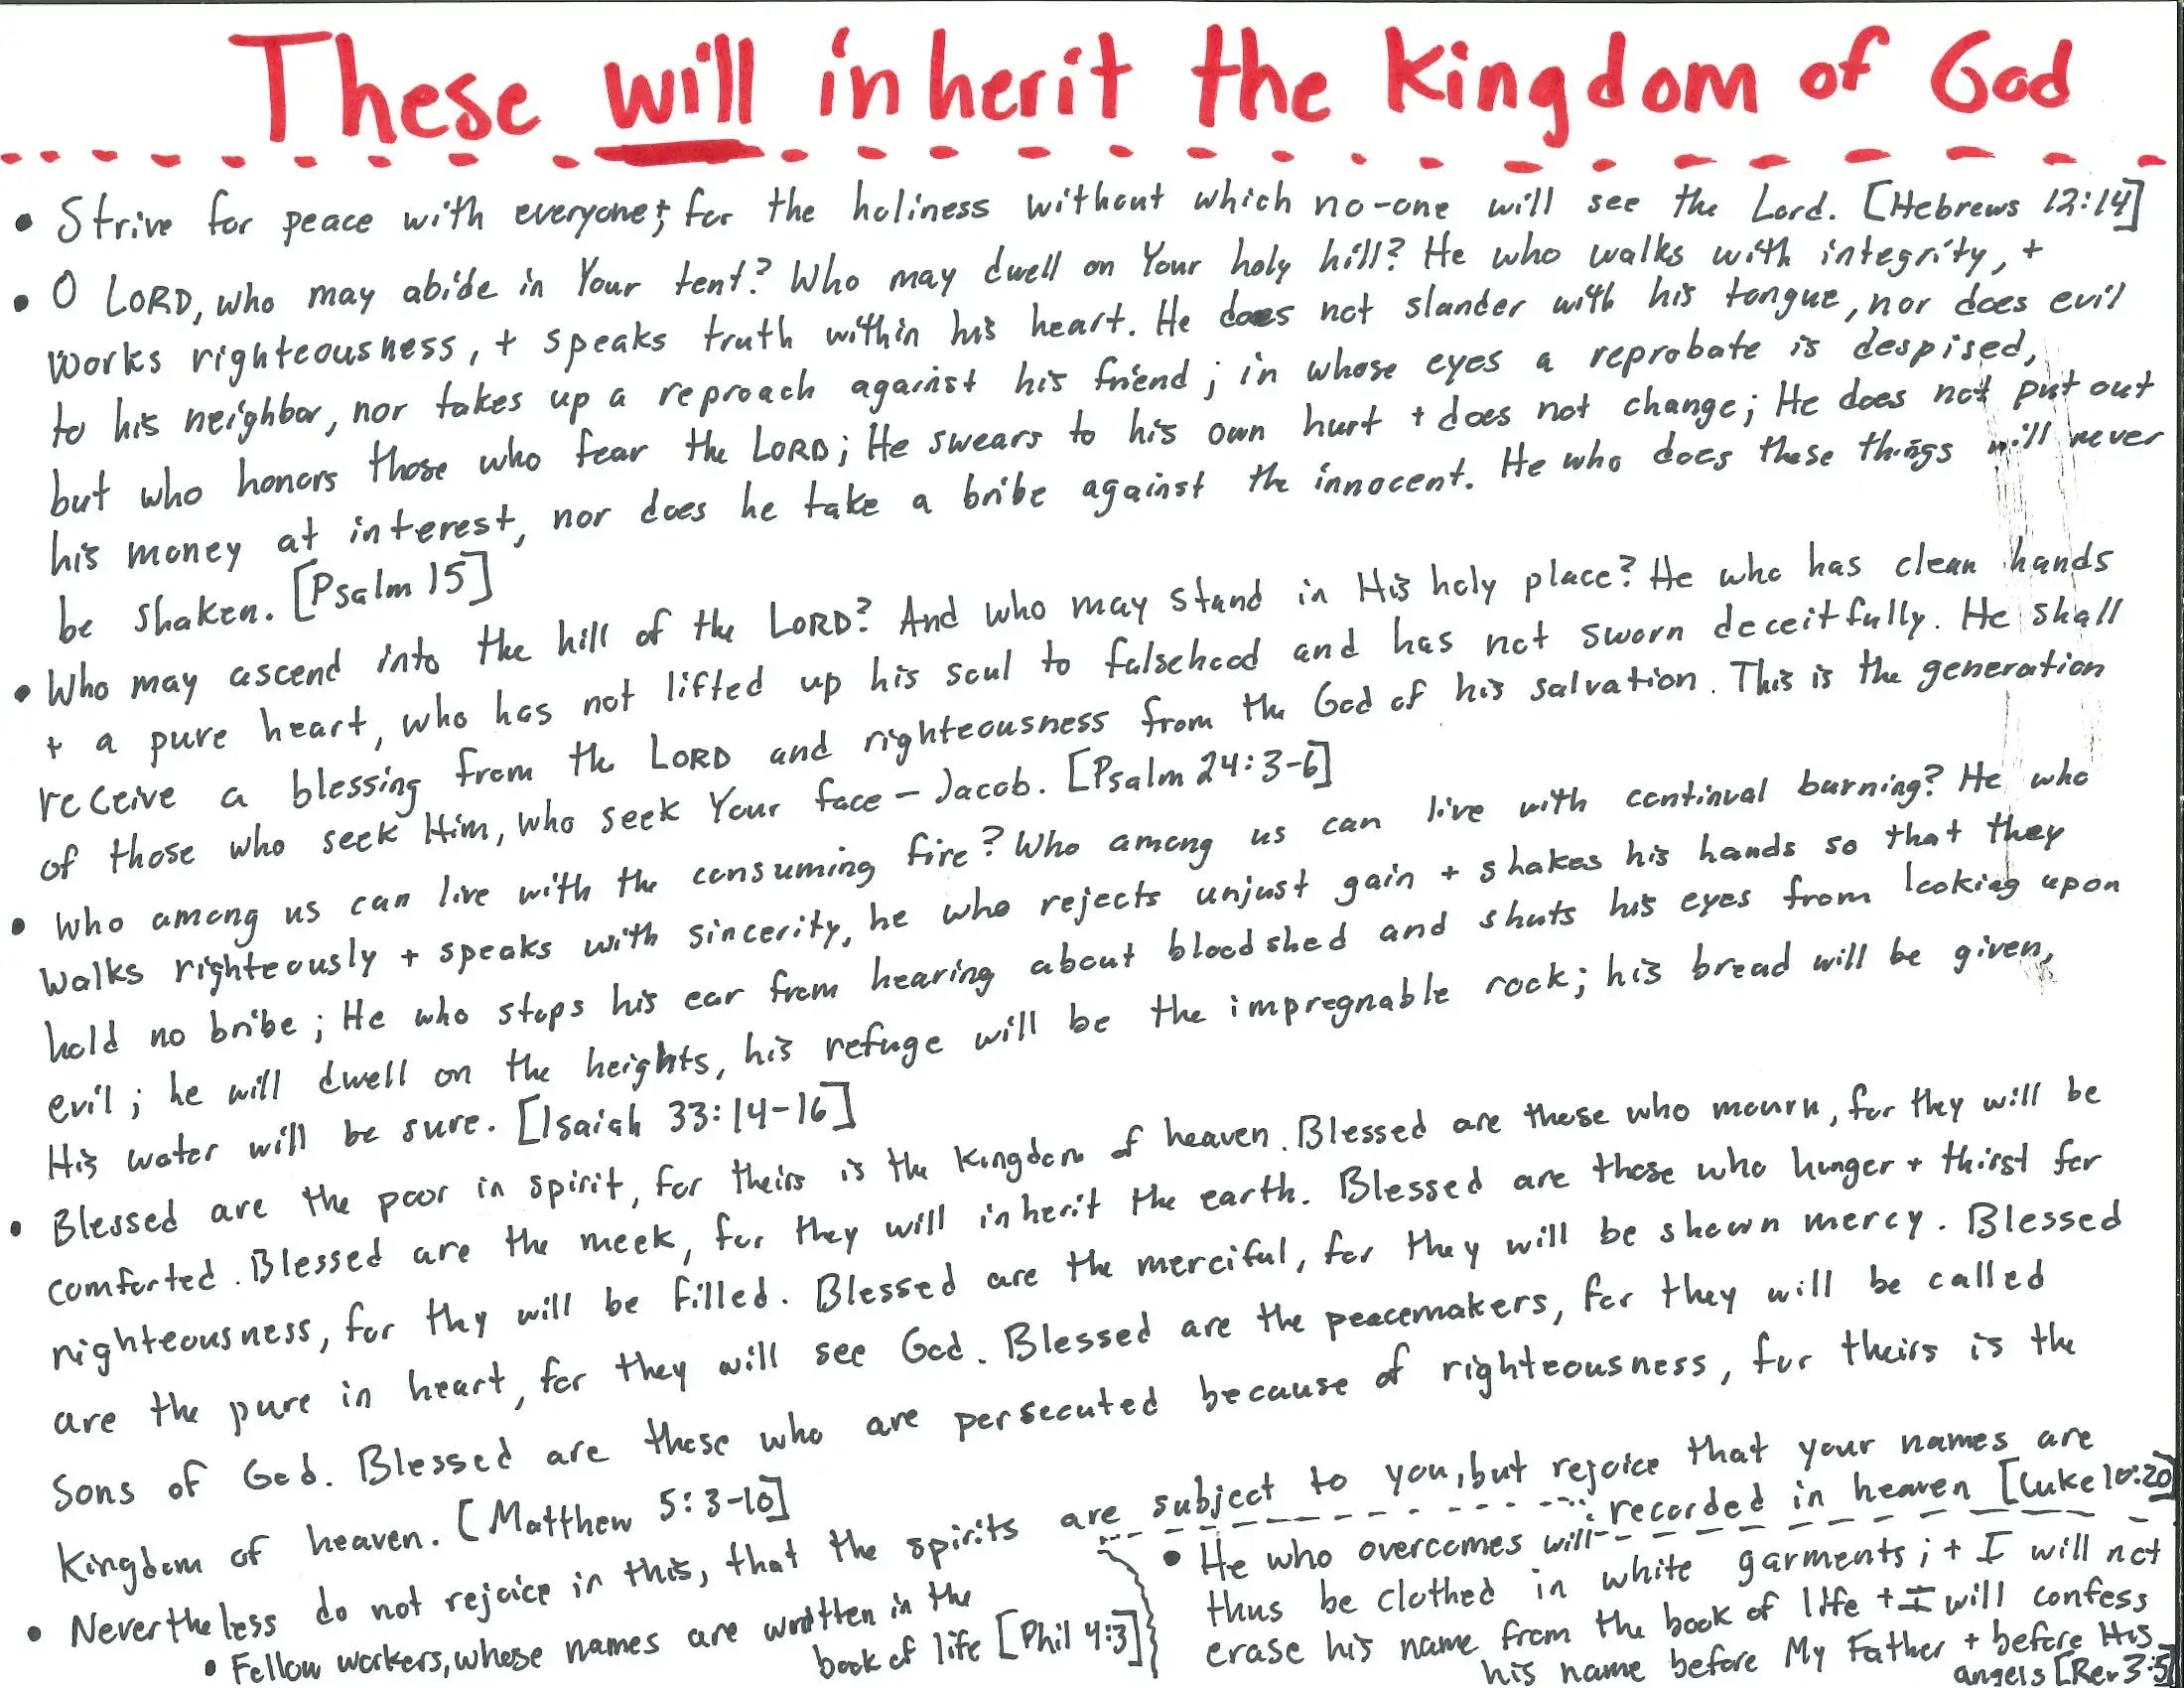 These will inherit the kingdom of God
• Strive for peace with everyone + for the holiness without which no-one will see the Lord. [Hebrews 12:14]
• O LORD, who may abide in Your tent? Who may dwell on Your holy hill? He who walks with integrity, +
works righteousness, + speaks truth within his heart. He does not slander with his tongue, nor does evil
to his neighbor, nor takes up a reproach against his friend; in whose eyes a reprobate is despised,
but who honors those who fear the LORD; He swears to his own hurt + does not change; He does not put out
his money at interest, nor does he take a bribe against the innocent. He who does these things will never
be shaken. [Psalm 15]
• Who may ascend into the hill of the LORD? And who may stand in His holy place? He who has clean hands
+ a pure heart, who has not lifted up his soul to falsehood and has not sworn deceitfully. He shall
receive a blessing from the LORD and righteousness from the God of his salvation. This is the generation
of those who seek Him, who seek Your face - Jacob. [Psalm 24:3-6]
• Who among us can live with the consuming fire? Who among us can live with continual burning? He who
walks righteously + speaks with sincerity, he who rejects unjust gain + shakes his hands so that they
hold no bribe; He who stops his ear from hearing about bloodshed and shuts his eyes from looking upon
evil; he will dwell on the heights, his refuge will be the impregnable rock; his bread will be given,
His water will be sure. [Isaiah 33:14-16]
• Blessed are the poor in spirit, for theirs is the kingdom of heaven. Blessed are those who mourn, for they will be
comforted. Blessed are the meek, for they will inherit the earth. Blessed are those who hunger + thirst for
righteousness, for they will be filled. Blessed are the merciful, for they will be shown mercy. Blessed
are the pure in heart, for they will see God. Blessed are the peacemakers, for they will be called
Sons of God. Blessed are those who are persecuted because of righteousness, for theirs is the
kingdom of heaven. [Matthew 5:3-10]
• Nevertheless do not rejoice in this, that the spirits are subject to you, but rejoice that your names are
recorded in heaven [Luke 10:20]
• Fellow workers, whose names are written in the
book of life [Phil 4:3]
• He who overcomes will
thus be clothed in white garments; + I will not
erase his name from the book of life + I will confess
his name before My Father + before His
angels [Rev 3:5]